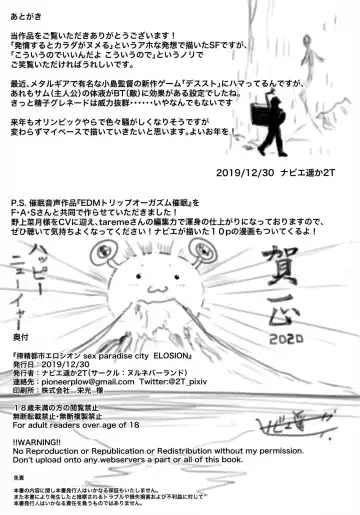 あとがき
当作品をご覧いただきありがとうございます！
「発情するとカラダがヌメる」というアホな発想で描いたSFですが、
「こういうのでいいんだよ こういうので」というノリで
ご笑覧いただければうれしいです。
最近、メタルギアで有名な小島監督の新作ゲーム「デススト」にハマってるんですが、
あれもサム（主人公）の体液がBT（敵）に効果がある設定でしたね。
きっと精子グレネードは威力抜群・・・・・・いやなんでもないです
来年もオリンピックやらで色々騒がしくなりそうですが
変わらずマイペースで描いていきたいと思います。よいお年を！
2019/12/30 ナビエ遥か2T
P.S. 催眠音声作品『EDMトリップオーガズム催眠』を
F・A・Sさんと共同で作らせていただきました！
野上菜月様をCVに迎え、taremeさんの編集力で渾身の仕上がりになっておりますので、
ぜひ聴いて気持ちよくなってください！ナビエが描いた１０pの漫画もついてくるよ！
ハッピーニューイヤー
賀正
2020
ナビエ遥か2T
奥付
『搾精都市エロシオン sex paradise city ELOSION』
発行日：2019/12/30
発行者：ナビエ遥か2T（サークル：ヌルネバーランド）
連絡先：pioneerplow@gmail.com Twitter:@2T_pixiv
印刷所：株式会社 栄光 様
１８歳未満の方の閲覧禁止
無断転載禁止・無断複製禁止
For adult readers over age of 18
!!WARNING!!
No Reproduction or Republication or Redistribution without my permission.
Don't upload onto any webservers a part or all of this book.
免責
本書の内容に関し本書発行人はいかなる保証もいたしません。
また本書により発生したと推察されるトラブルや損失損害および不利益に対して
本書発行人はいかなる責任を負うものではありません。